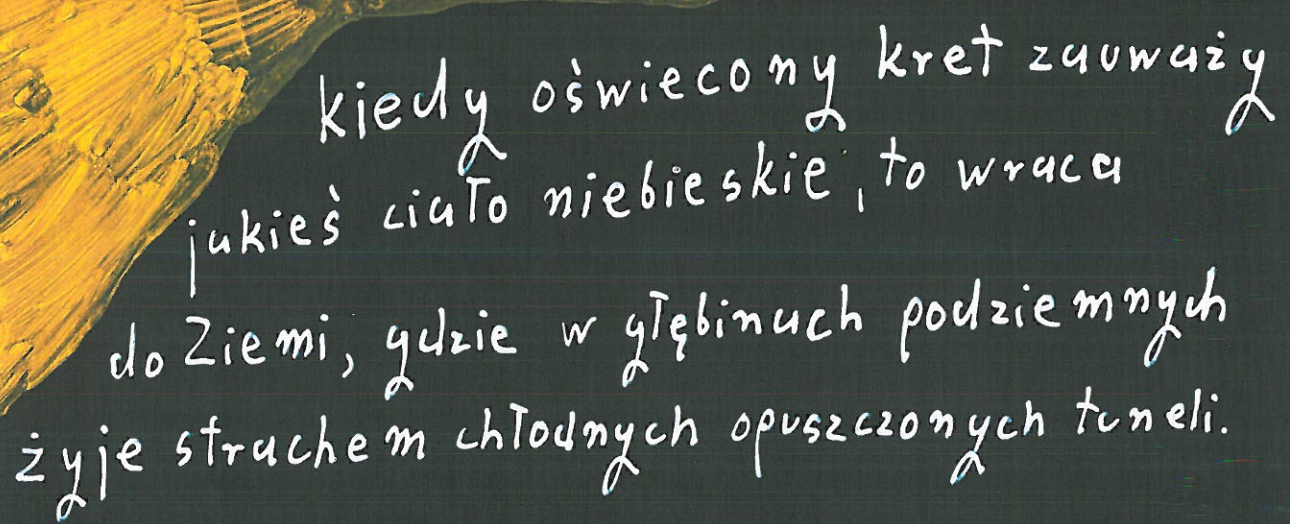 kiedy oświecony kret zauważy
jakieś ciało niebieskie, to wraca
do Ziemi, gdzie w głębinach podziemnych
żyje strachem chłodnych opuszczonych tuneli.